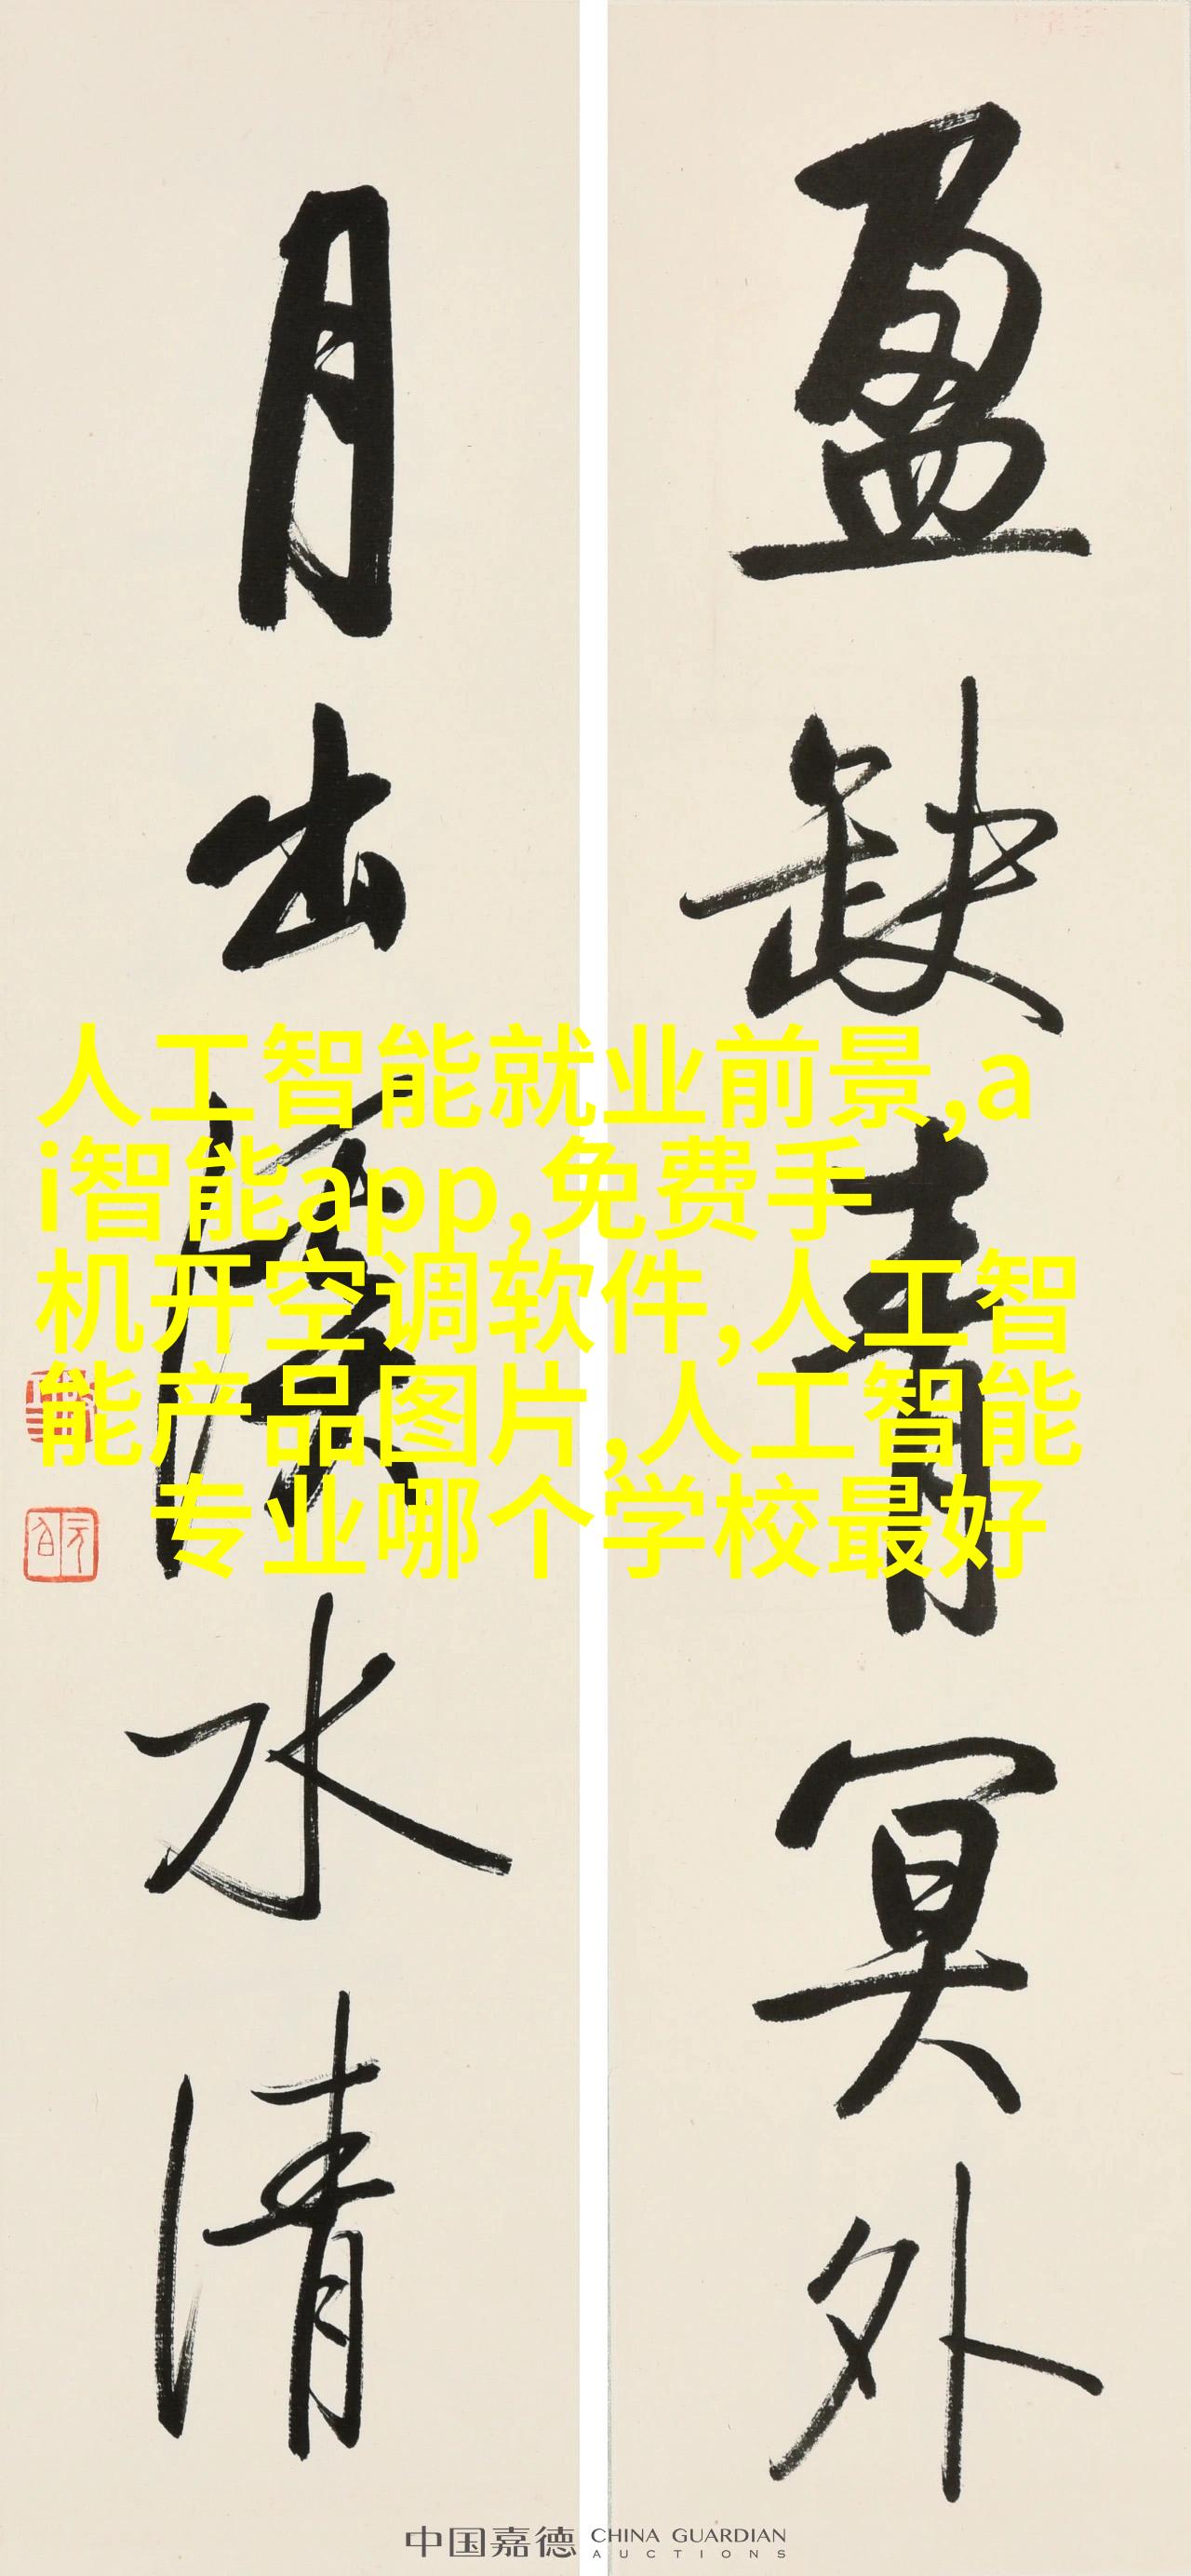 盈缺青冥外
月出水清
人工智能就业前景,a
i智能app,免费手
机开空调软件,人工智
能产品图片,人工智能
专业哪个学校最好
中国嘉德 CHINA GUARDIAN
AUCTIONS